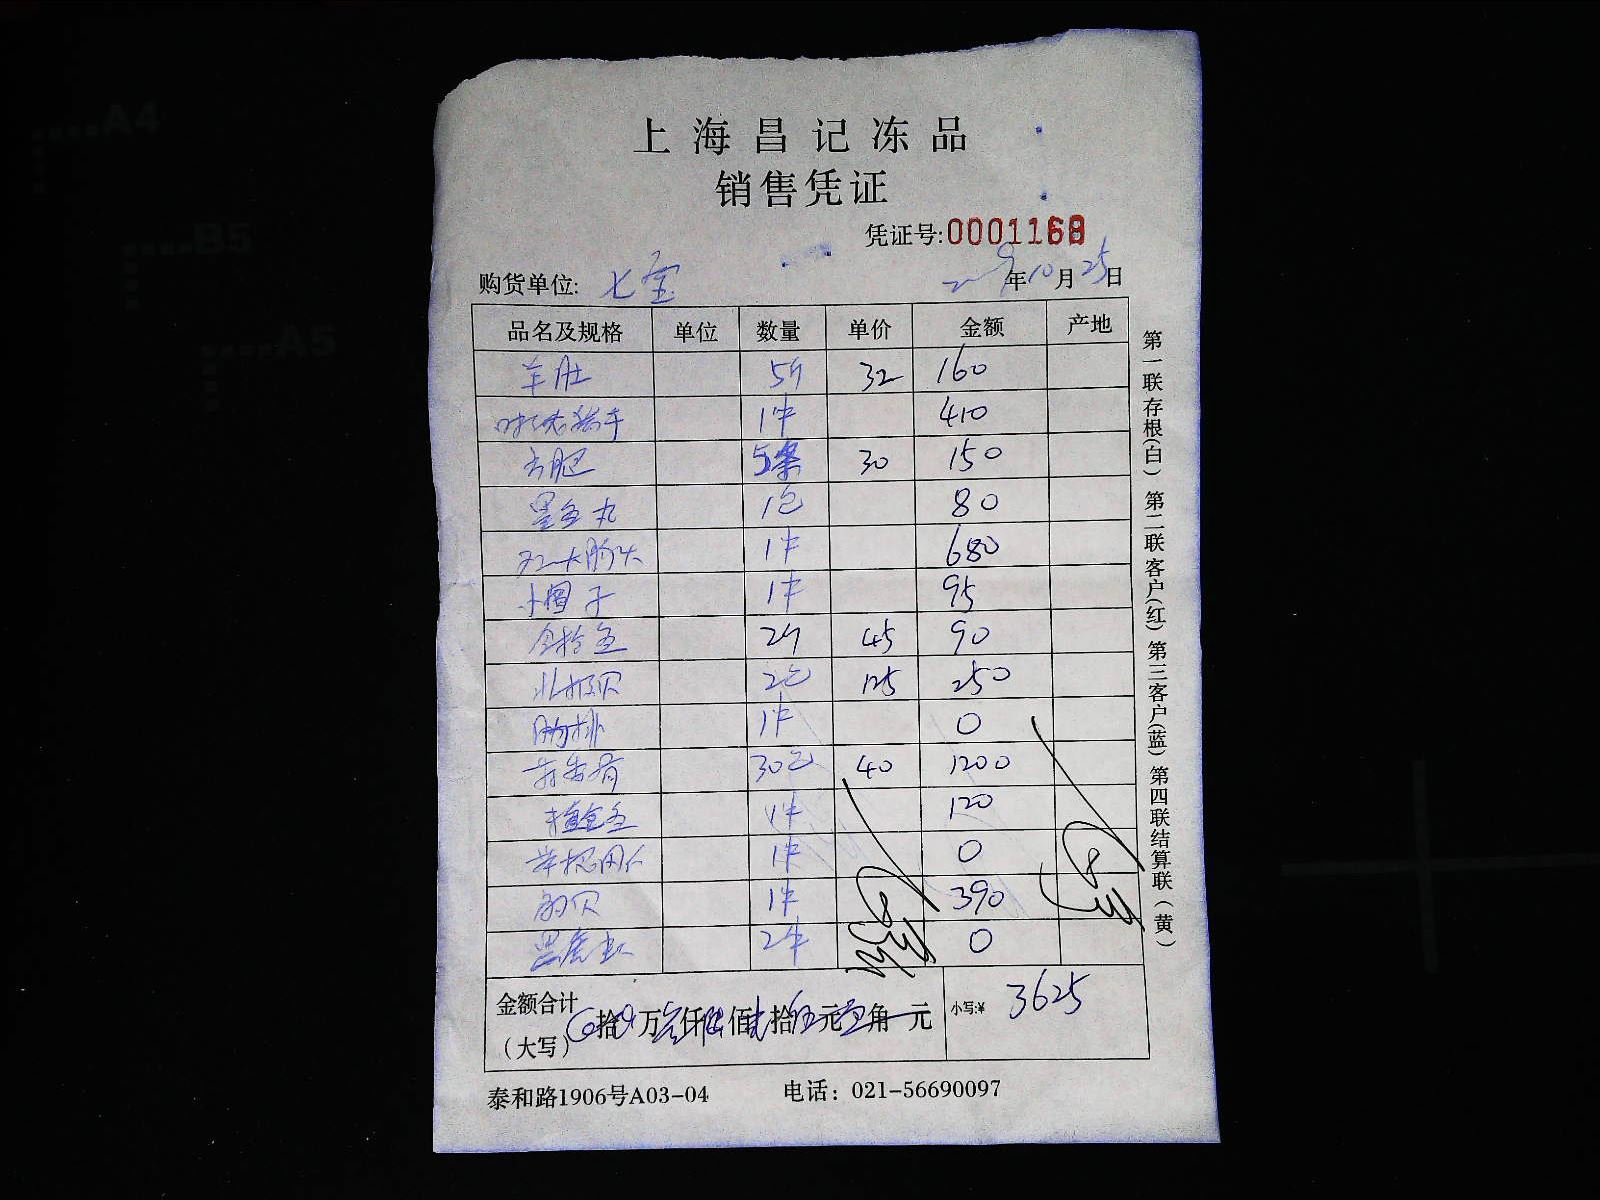 A4
B5
A5
上海昌记冻品
销售凭证
凭证号:0001168
购货单位: 七宝 2019年10月25日
品名及规格 单位 数量 单价 金额 产地
羊肚 5斤 32 160
1件 410
5条 30 150
墨鱼丸 1包 80
1件 680
小帽子 1件 95
2斤 45 90
北极贝 2包 125 250
1件 0
30包 40 1200
1件 120
1件 0
1件 390
黑虎虾 2件 0
金额合计(大写) 拾 万 仟 佰 拾 伍元 角 元 小写:¥ 3625
泰和路1906号A03-04 电话: 021-56690097
第一联存根(白) 第二联客户(红) 第三客户(蓝) 第四联结算联(黄)